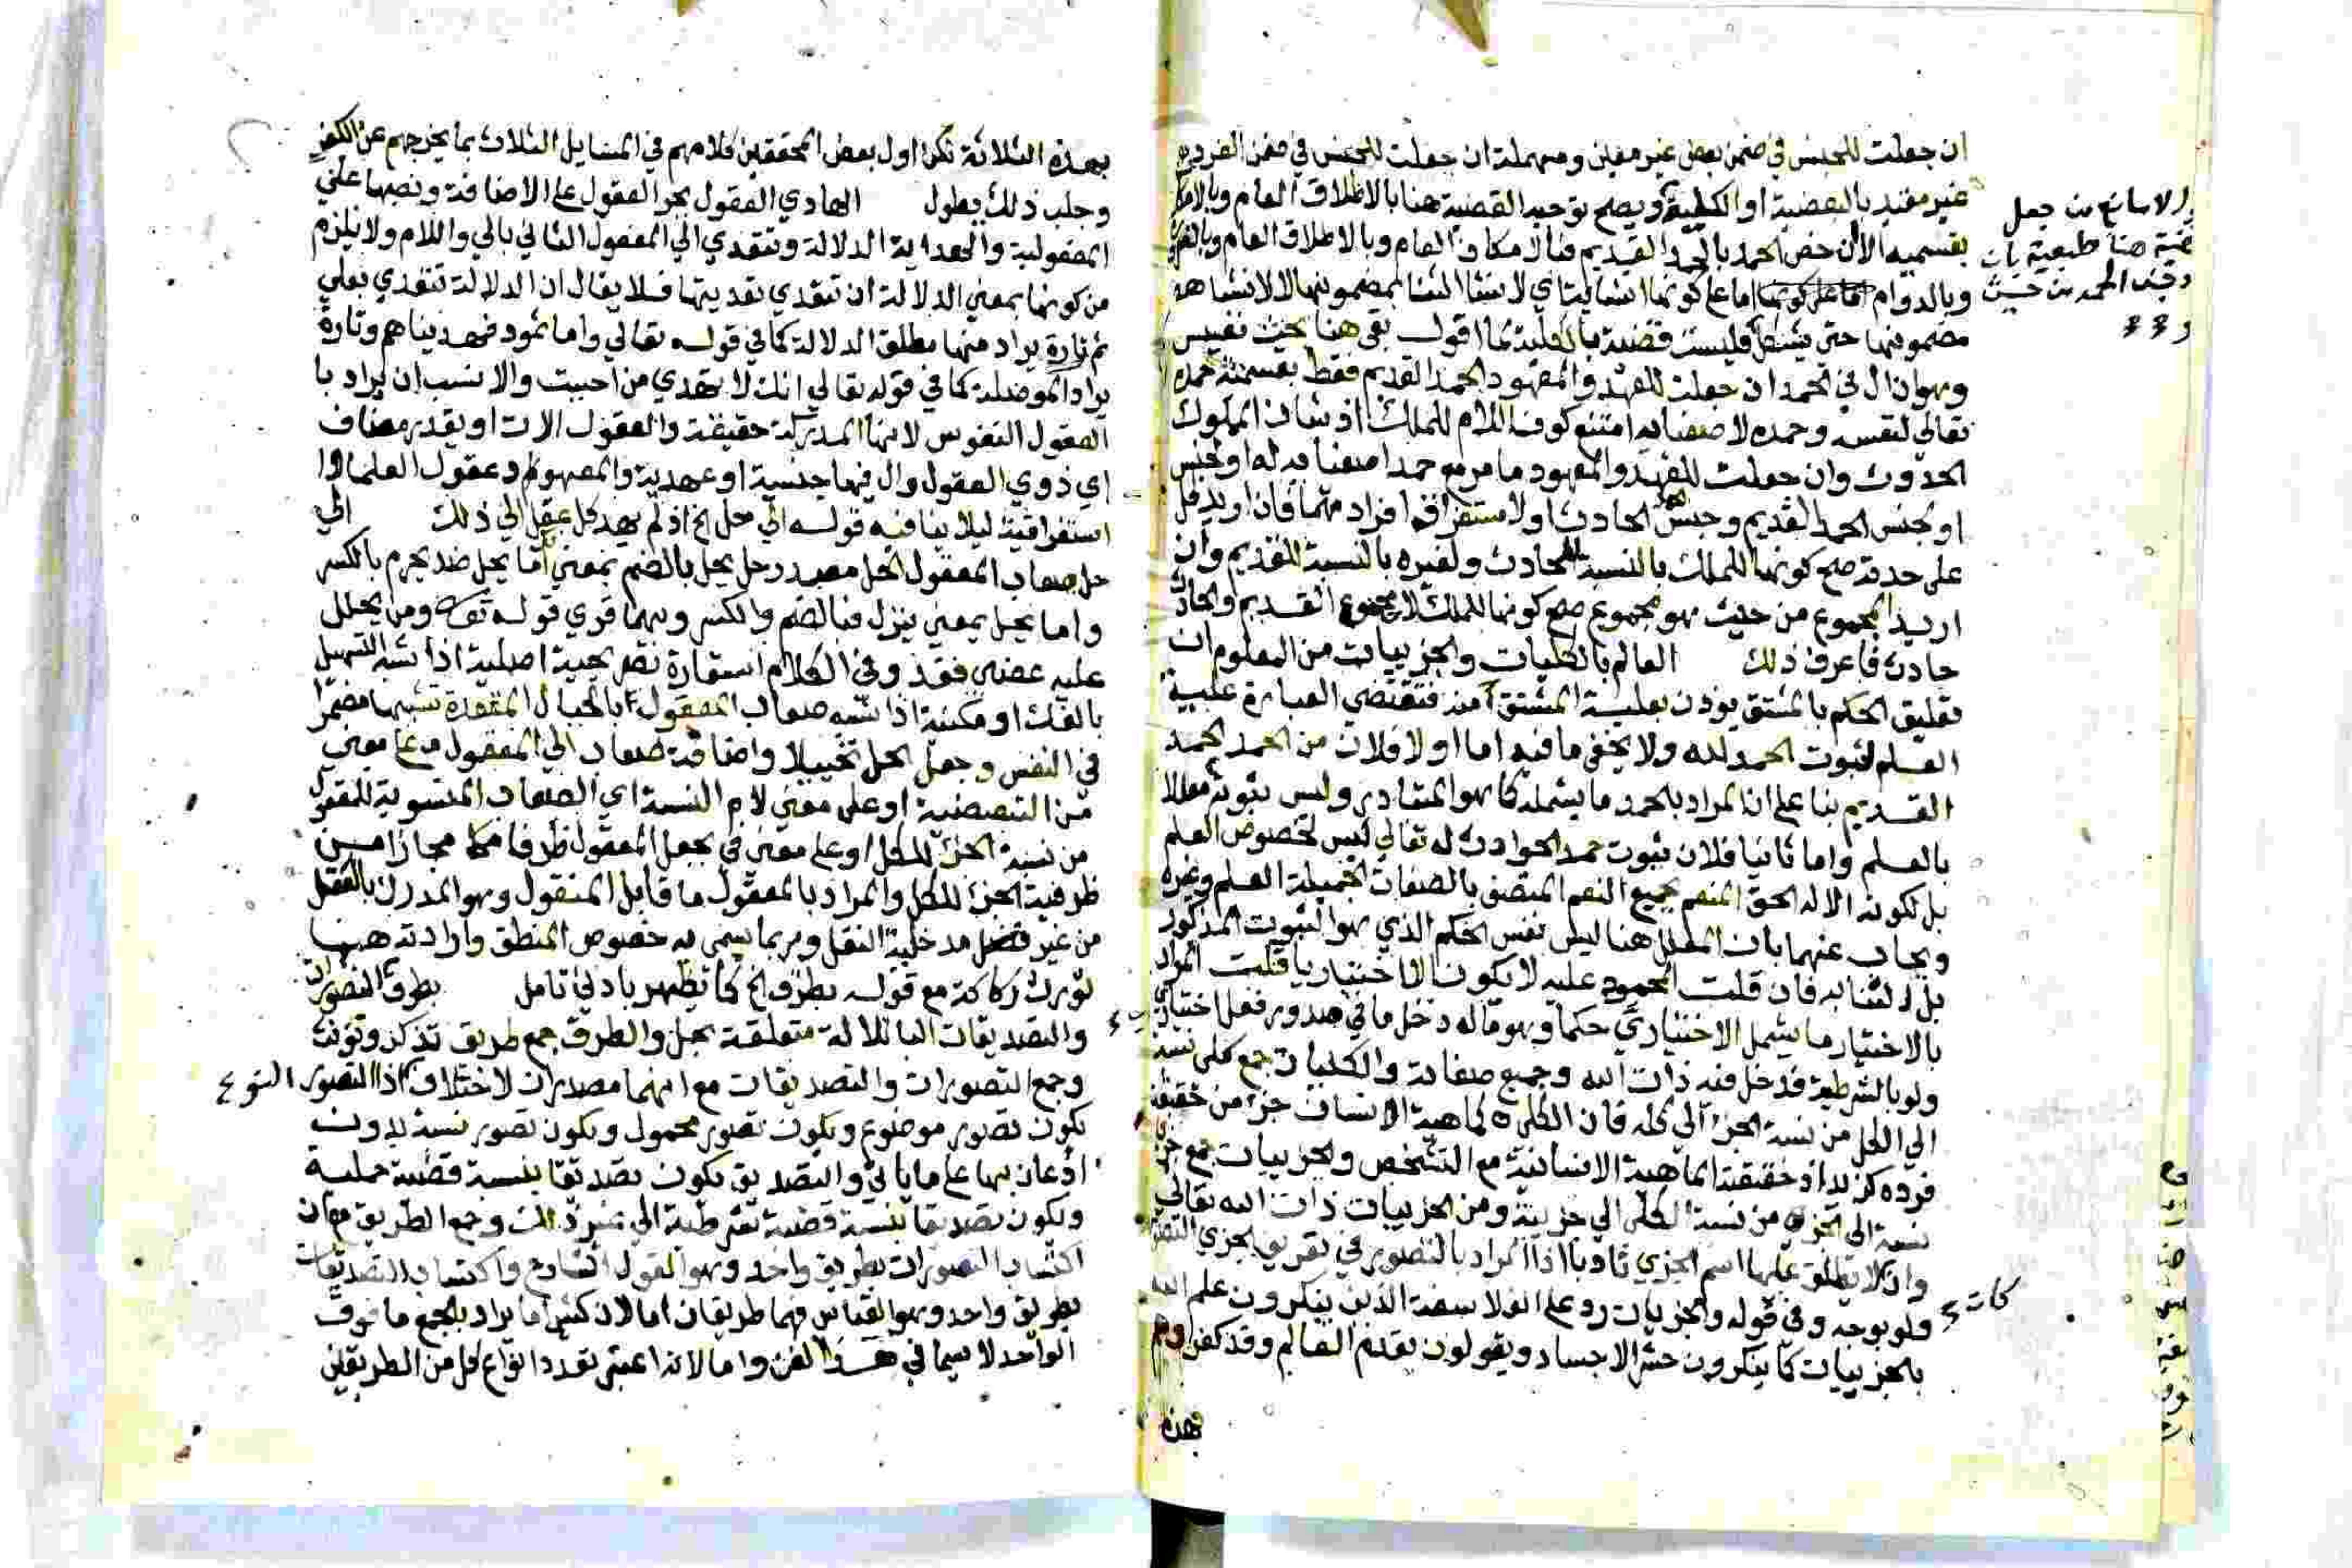 ان جعلت للجنس في ضمن بعض غير معين ومهملة ان جعلت للجنس في ضمن الفرده
غير مقيد بالبعضية او الكلية ويصح توحيد القضية هنا بالاطلاق العام وبالامكان
بقسميه الا ان خص الحمد بالقديم فبالامكان العام وبالاطلاق العام وبالضرورة
وبالدوام اما على كونها انشائية اي لانشا الثنا بمضمونها لا لانشا هد
مضمونها حتى يشكل فليست قضية بالكلية اقول بقي هنا بحث نفيس
وهو ان ال في الحمد ان جعلت للعهد والمعهود الحمد القديم فقط بقسمته حمده
تعالى لنفسه وحمده لاصفيائه امتنع كون اللام للملك اذ شان المملوك
الحدوث وان جعلت للعهد والمعهود ما مر مع حمد اصفيائه له او لجنس
او لجنس الحمد القديم وجنس الحمد الحادث او لاستغراق افراد منهما فان اريد كل
على حدته صح كونها للملك بالنسبة للحادث ولغيره بالنسبة للقديم وان
اريد المجموع من حيث هو مجموع صح كونها للملك لان مجموع القديم والحادث
حادث فاعرف ذلك العالم بالكليات والجزئيات من المعلوم ان
تعليق الحكم بالمشتق يوذن بعلية المشتق منه فتقتضي العبارة علية
العلم لثبوت الحمد لله ولا يخفى ما فيه اما اولا فلان من الحمد الحمد
القديم بنا على ان المراد بالحمد ما يشمله كما هو المتبادر وليس ثبوته معللا
بالعلم واما ثانيا فلان ثبوت حمد الحوادث له تعالى ليس لخصوص العلم
بل لكونه الاله الحق المنعم بجميع النعم المتصف بالصفات الجميلة العلم وغيره
ويجاب عنهما بان المعلل هنا ليس نفس الحكم الذي هو الثبوت المذكور
بل الثنا به فان قلت المحمود عليه لا يكون الا اختياريا قلت المراد
بالاختيار ما يشمل الاختياري حكما وهو ما له دخل ما في صدور فعل اختياري
ولو بالشرطية فدخل فيه ذات الله وجميع صفاته والكليات جمع كلي نسبة
الى الكل من نسبة الجزء الى كله فان الكلي كماهية الانسان جزء من حقيقة
فرده كزيد اذ حقيقته الماهية الانسانية مع التشخص والجزئيات جمع جزئي
نسبة الى الجزء من نسبة الكلي الى جزئية ومن الجزئيات ذات الله تعالى
وان كان لا يطلق عليها اسم الجزي تادبا اذا المراد بالتصور في تعريف الجزي التصور
ولو بوجه وفي قوله والجزيات رد على الفلاسفة الذين ينكرون علم الله
بالجزييات كما ينكرون حشر الاجساد ويقولون بقدم العالم وقد كفروا
بهذه
طبيعية بان
كات
بهذه الثلاثة لكن اول بعض المحققين كلامهم في المسايل الثلاث بما يخرجهم عن الكفر
وجلب ذلك يطول الهادي العقول بجر العقول على الاضافة ونصبها على
المفعولية والهداية الدلالة وتتعدي الى المفعول الثاني بالى واللام ولا يلزم
من كونها بمعنى الدلالة ان تتعدي تعديتها فلا يقال ان الدلالة تتعدي بعلى
ثم تارة يراد منها مطلق الدلالة كما في قوله تعالى واما ثمود فهديناهم وتارة
يراد الموصلة كما في قوله تعالى انك لا تهدي من احببت والانسب ان يراد با
العقول النفوس لانها المدركة حقيقة والعقول الات او يقدر مضاف
اي ذوي العقول وال فيها جنسية او عهدية والمعهود عقول العلما لا
استغراقية ليلا ينافيه قوله الى حل الخ اذ لم يهد كل عقل الى ذلك الى
حل صعاب المعقول الحل مصدر حل يحل بالضم بمعنى اما يحل ضد يحرم بالكسر
واما يحل بمعنى ينزل فبالضم والكسر وبهما قري قوله تعالى ومن يحلل
عليه غضبي فقد وفي الكلام استعارة تصريحية اصلية اذا شبه التسهيل
بالفك او مكنية اذا شبه صعاب المعقول بالحبال المعقدة تشبيها مضمرا
في النفس وجعل الحل تخييلا واضافة صعاب الى المعقول على معنى
من التبعيضية او على معنى لام النسبة اي الصعاب المنسوبة للمعقول
من نسبة الجزء للكل او على معنى في بجعل المعقول ظرفا لها مجازا من
ظرفية الجزء للكل والمراد بالمعقول ما قابل المنقول وهو المدرك بالعقل
من غير مدخلية النقل وربما يسمى به خصوص المنطق وارادته هنا
تورث ركاكة مع قوله بطرق الخ كما يظهر بادنى تامل بطرق التصورات
والتصديقات البا للالة متعلقة بحل والطرق جمع طريق تذكر وتونث
وجمع التصورات والتصديقات مع انهما مصدران لاختلاف النوع اذ التصور
يكون تصور موضوع ويكون تصور محمول ويكون تصور نسبة بدون
اذعان بها على ما ياتي والتصديق يكون تصديقا بنسبة قضية حملية
ويكون تصديقا بنسبة قضية شرطية الى غير ذلك وجمع الطريق مع ان
اكتساب التصورات بطريق واحد وهو القول الشارح واكتساب التصديقات
بطريق واحد وهو القياس فهما طريقان اما لان كثيرا ما يراد بالجمع ما فوق
الواحد لا سيما في هذا الفن واما لانه اعتبر تعدد انواع كل من الطريقين